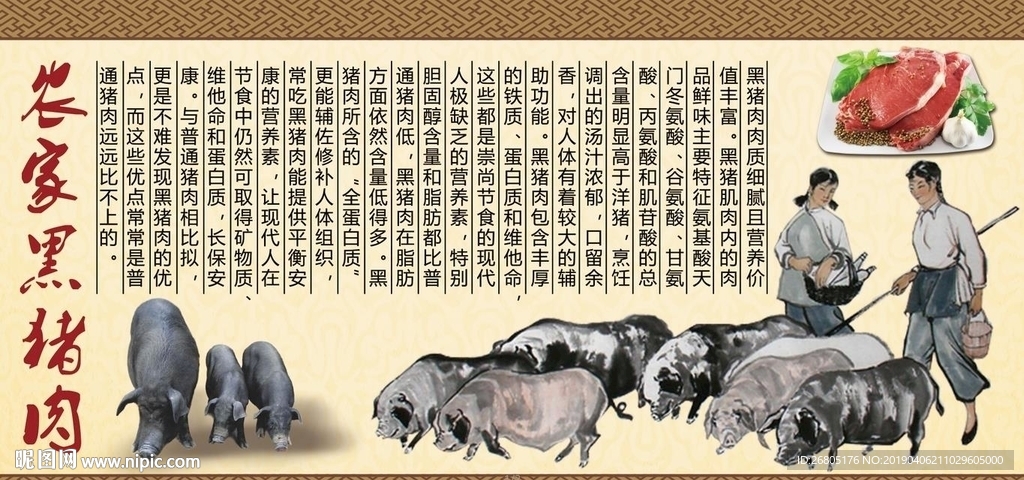 农家黑猪肉
黑猪肉肉质细腻且营养价
值丰富。黑猪肌肉内的肉
品鲜味主要特征氨基酸天
门冬氨酸、谷氨酸、甘氨
酸、丙氨酸和肌苷酸的总
含量明显高于洋猪，烹饪
调出的汤汁浓郁，口留余
香，对人体有着较大的辅
助功能。黑猪肉包含丰厚
的铁质、蛋白质和维他命，
这些都是崇尚节食的现代
人极缺乏的营养素，特别
胆固醇含量和脂肪都比普
通猪肉低，黑猪肉在脂肪
方面依然含量低得多。黑
猪肉所含的“全蛋白质”
更能辅佐修补人体组织，
常吃黑猪肉能提供平衡安
康的营养素，让现代人在
节食中仍然可取得矿物质、
维他命和蛋白质，长保安
康。与普通猪肉相比拟，
更是不难发现黑猪肉的优
点，而这些优点常常是普
通猪肉远远比不上的。
昵图网 www.nipic.com
ID:26805176 NO:20190406211029605000